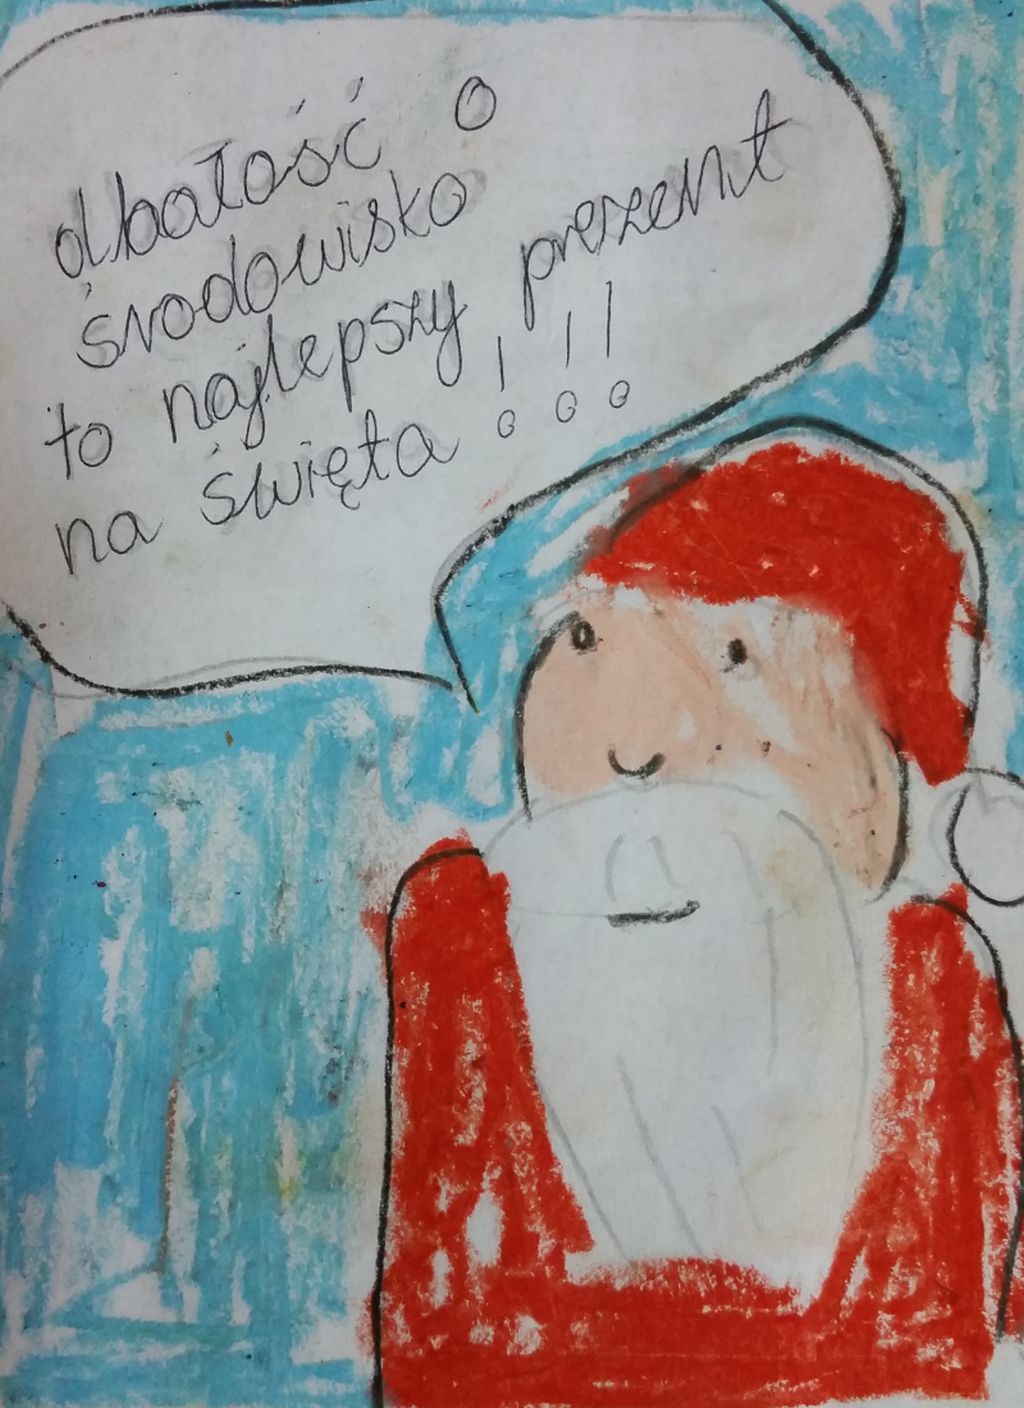 dbałość o
środowisko
to najlepszy prezent
na święta !!!